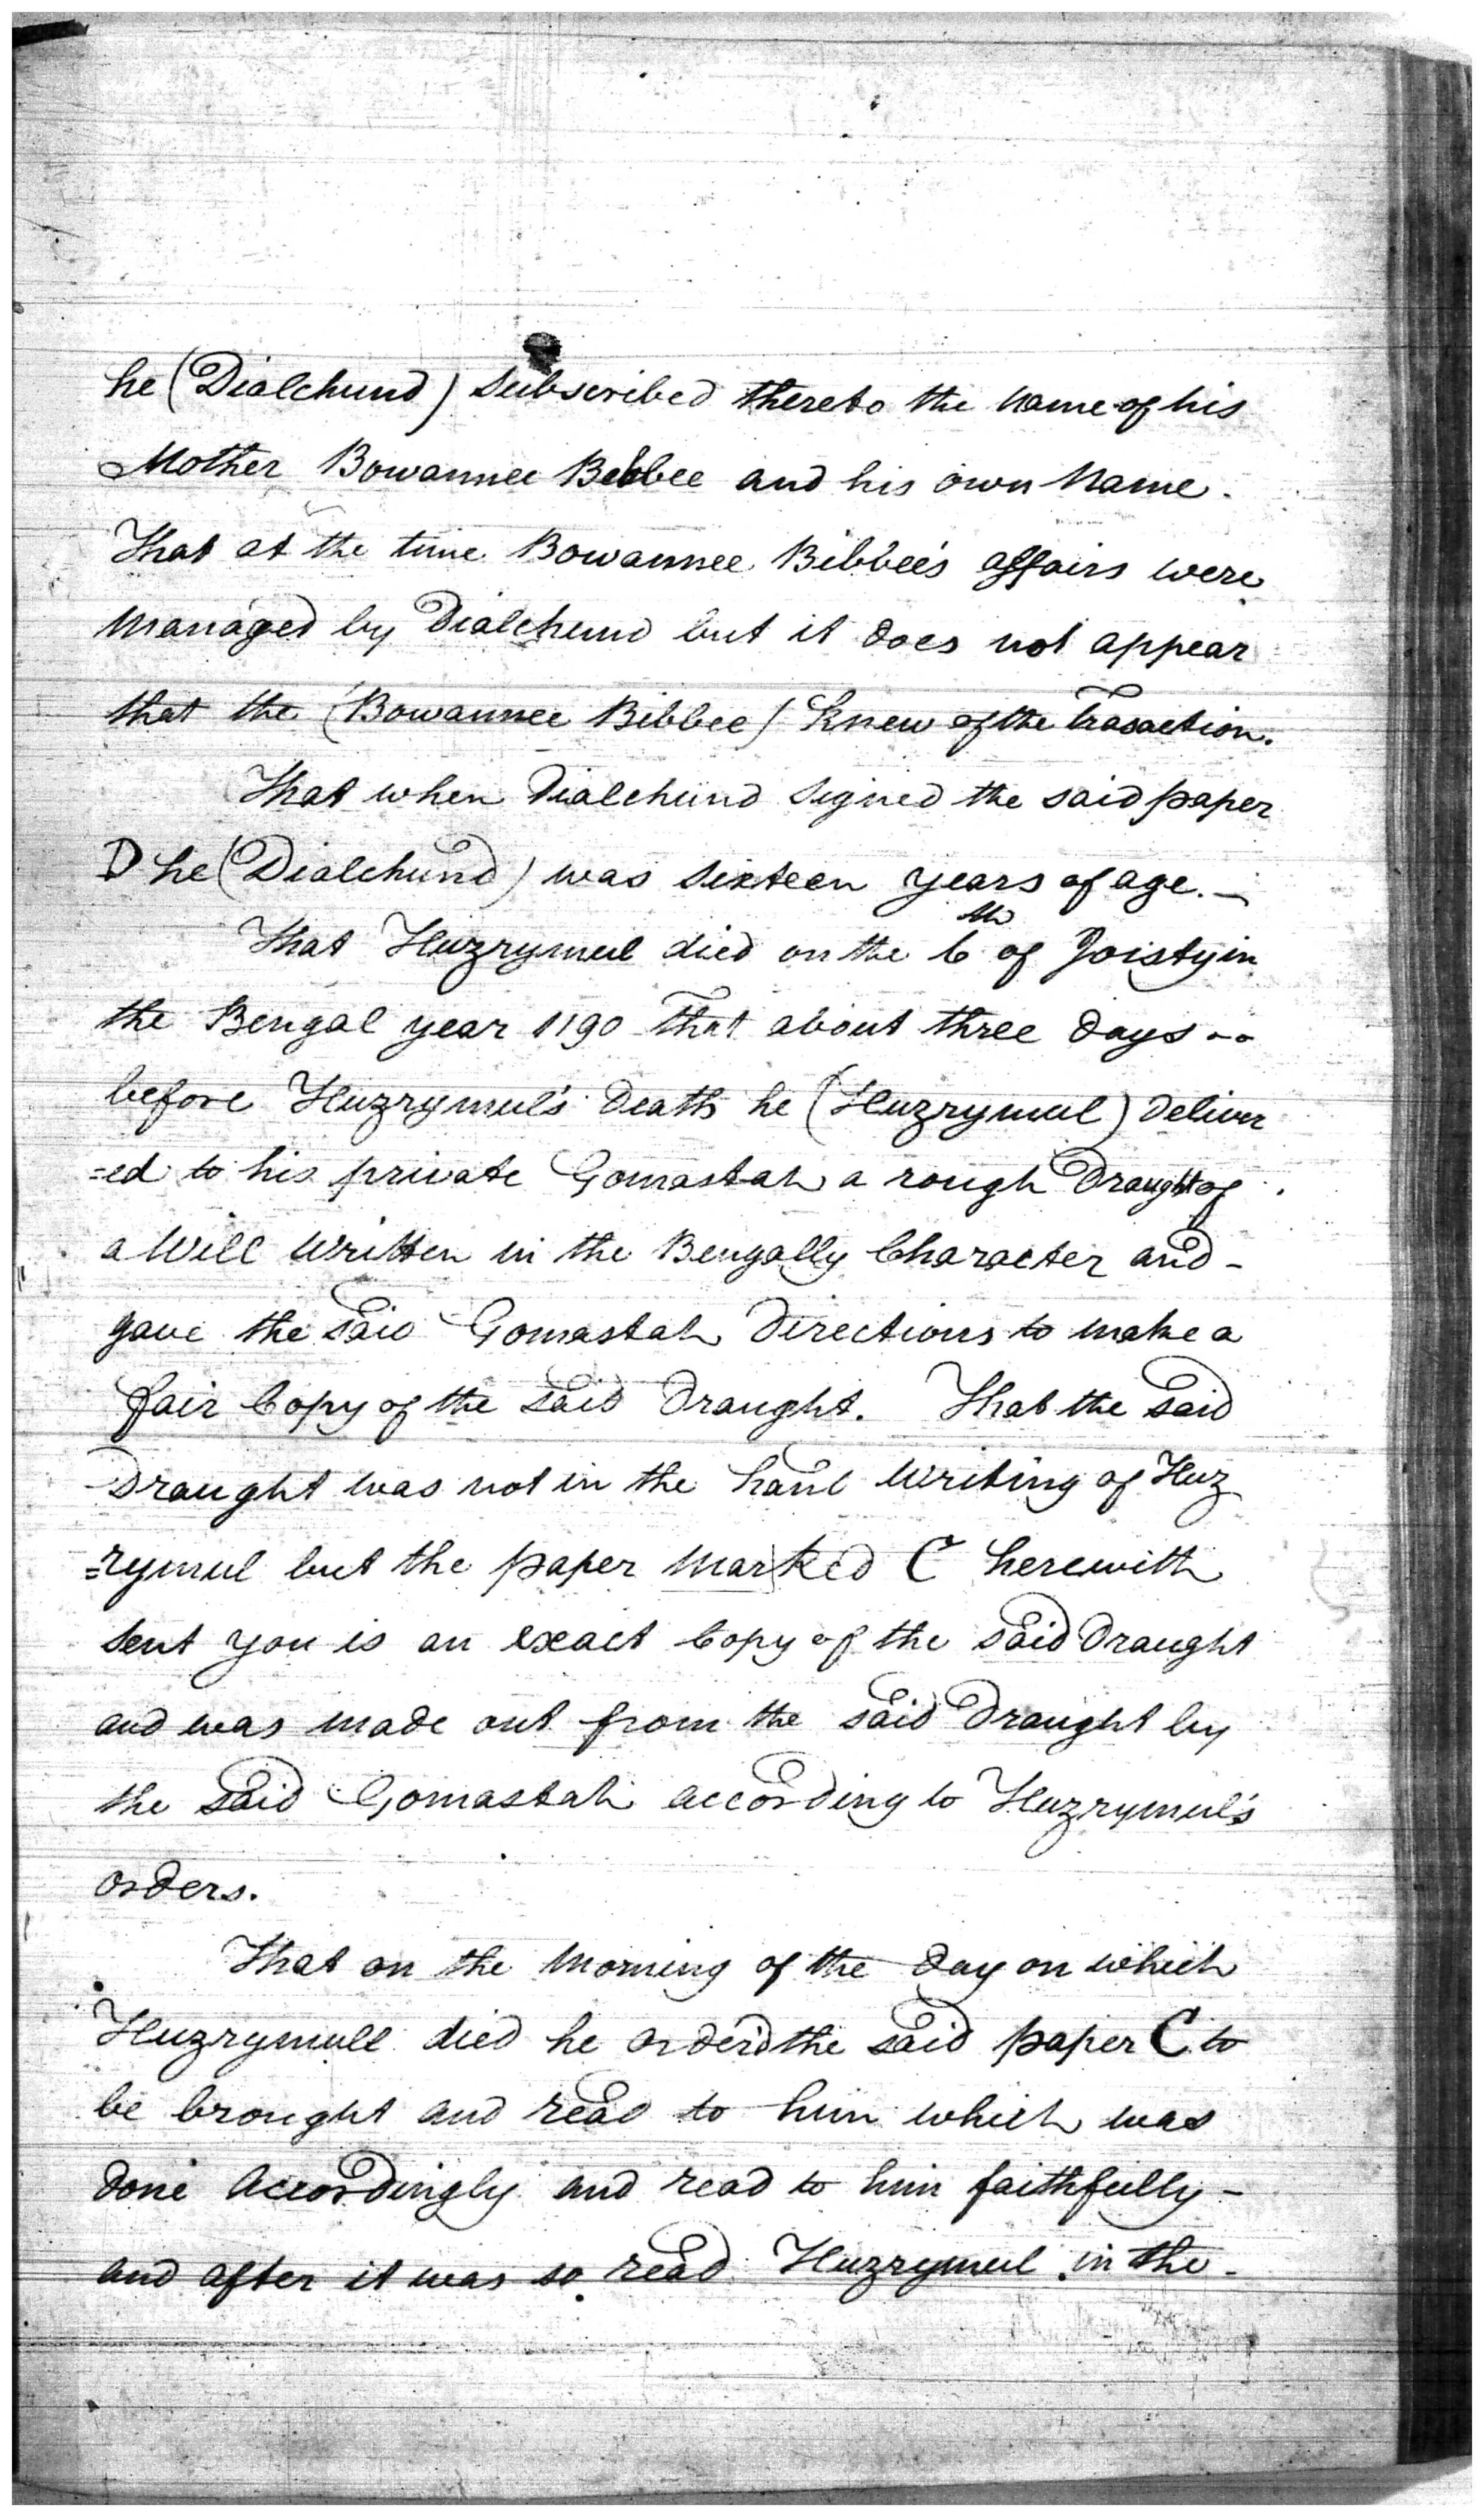 he (Dialchund) subscribed thereto the name of his
Mother Bowannee Bebbee and his own Name.
That at the time Bowannee Bibbee's affairs were
managed by Dialchund but it does not appear
that the (Bowannee Bibbee) knew of the Trasaction.
That when Dialchund signed the said paper
D he (Dialchund) was sixteen years of age. —
That Huzrymul died on the 6th of Joisty in
the Bengal year 1190 That about three days
before Huzrymul's Death he (Huzrymul) Deliver
=ed to his private Gomastah a rough Draught of
a Will Written in the Bengally Character and -
gave the said Gomastah Directions to make a
fair Copy of the said Draught. That the said
Draught was not in the hand Writing of Huz
=rymul but the paper Marked C herewith
sent you is an exact Copy of the said Draught
and was made out from the said Draught by
the said Gomastah according to Huzrymul's
orders.
That on the Morning of the Day on which
Huzrymull died he order'd the said paper C to
be brought and read to him which was
Done Accordingly and read to him faithfully -
and after it was so read Huzrymul in the -